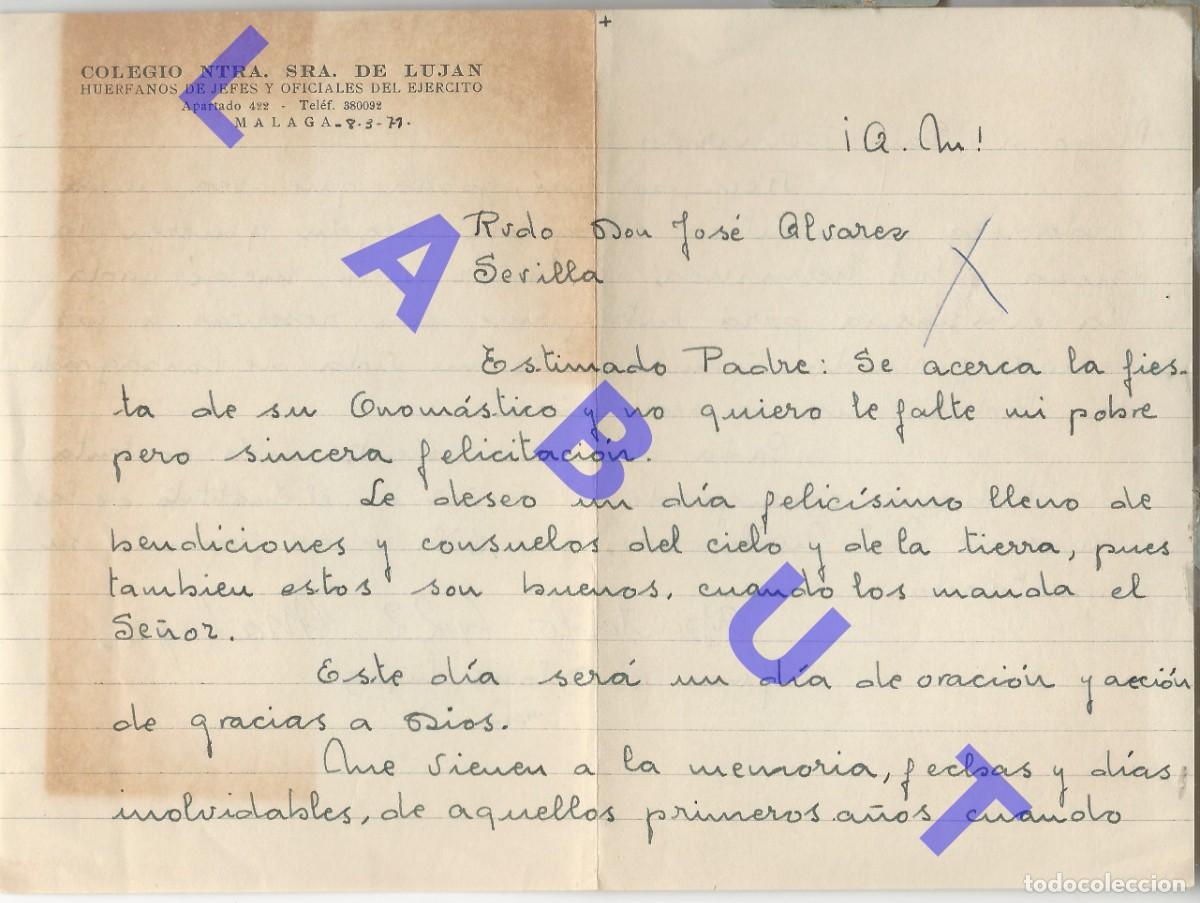 +
COLEGIO NTRA. SRA. DE LUJAN
HUERFANOS DE JEFES Y OFICIALES DEL EJERCITO
Apartado 422 - Teléf. 380092
MALAGA-8-3-71-
¡A. M!
Rvdo Don José Alvarez
Sevilla
Estimado Padre: Se acerca la fies-
ta de su Onomástico y no quiero le falte mi pobre
pero sincera felicitación.
Le deseo un día felicísimo lleno de
bendiciones y consuelos del cielo y de la tierra, pues
tambien estos son buenos, cuando los manda el
Señor.
Este día será un día de oración y acción
de gracias a Dios.
Me vienen a la memoria, fechas y días
inolvidables, de aquellos primeros años cuando
LABUT
todocoleccion